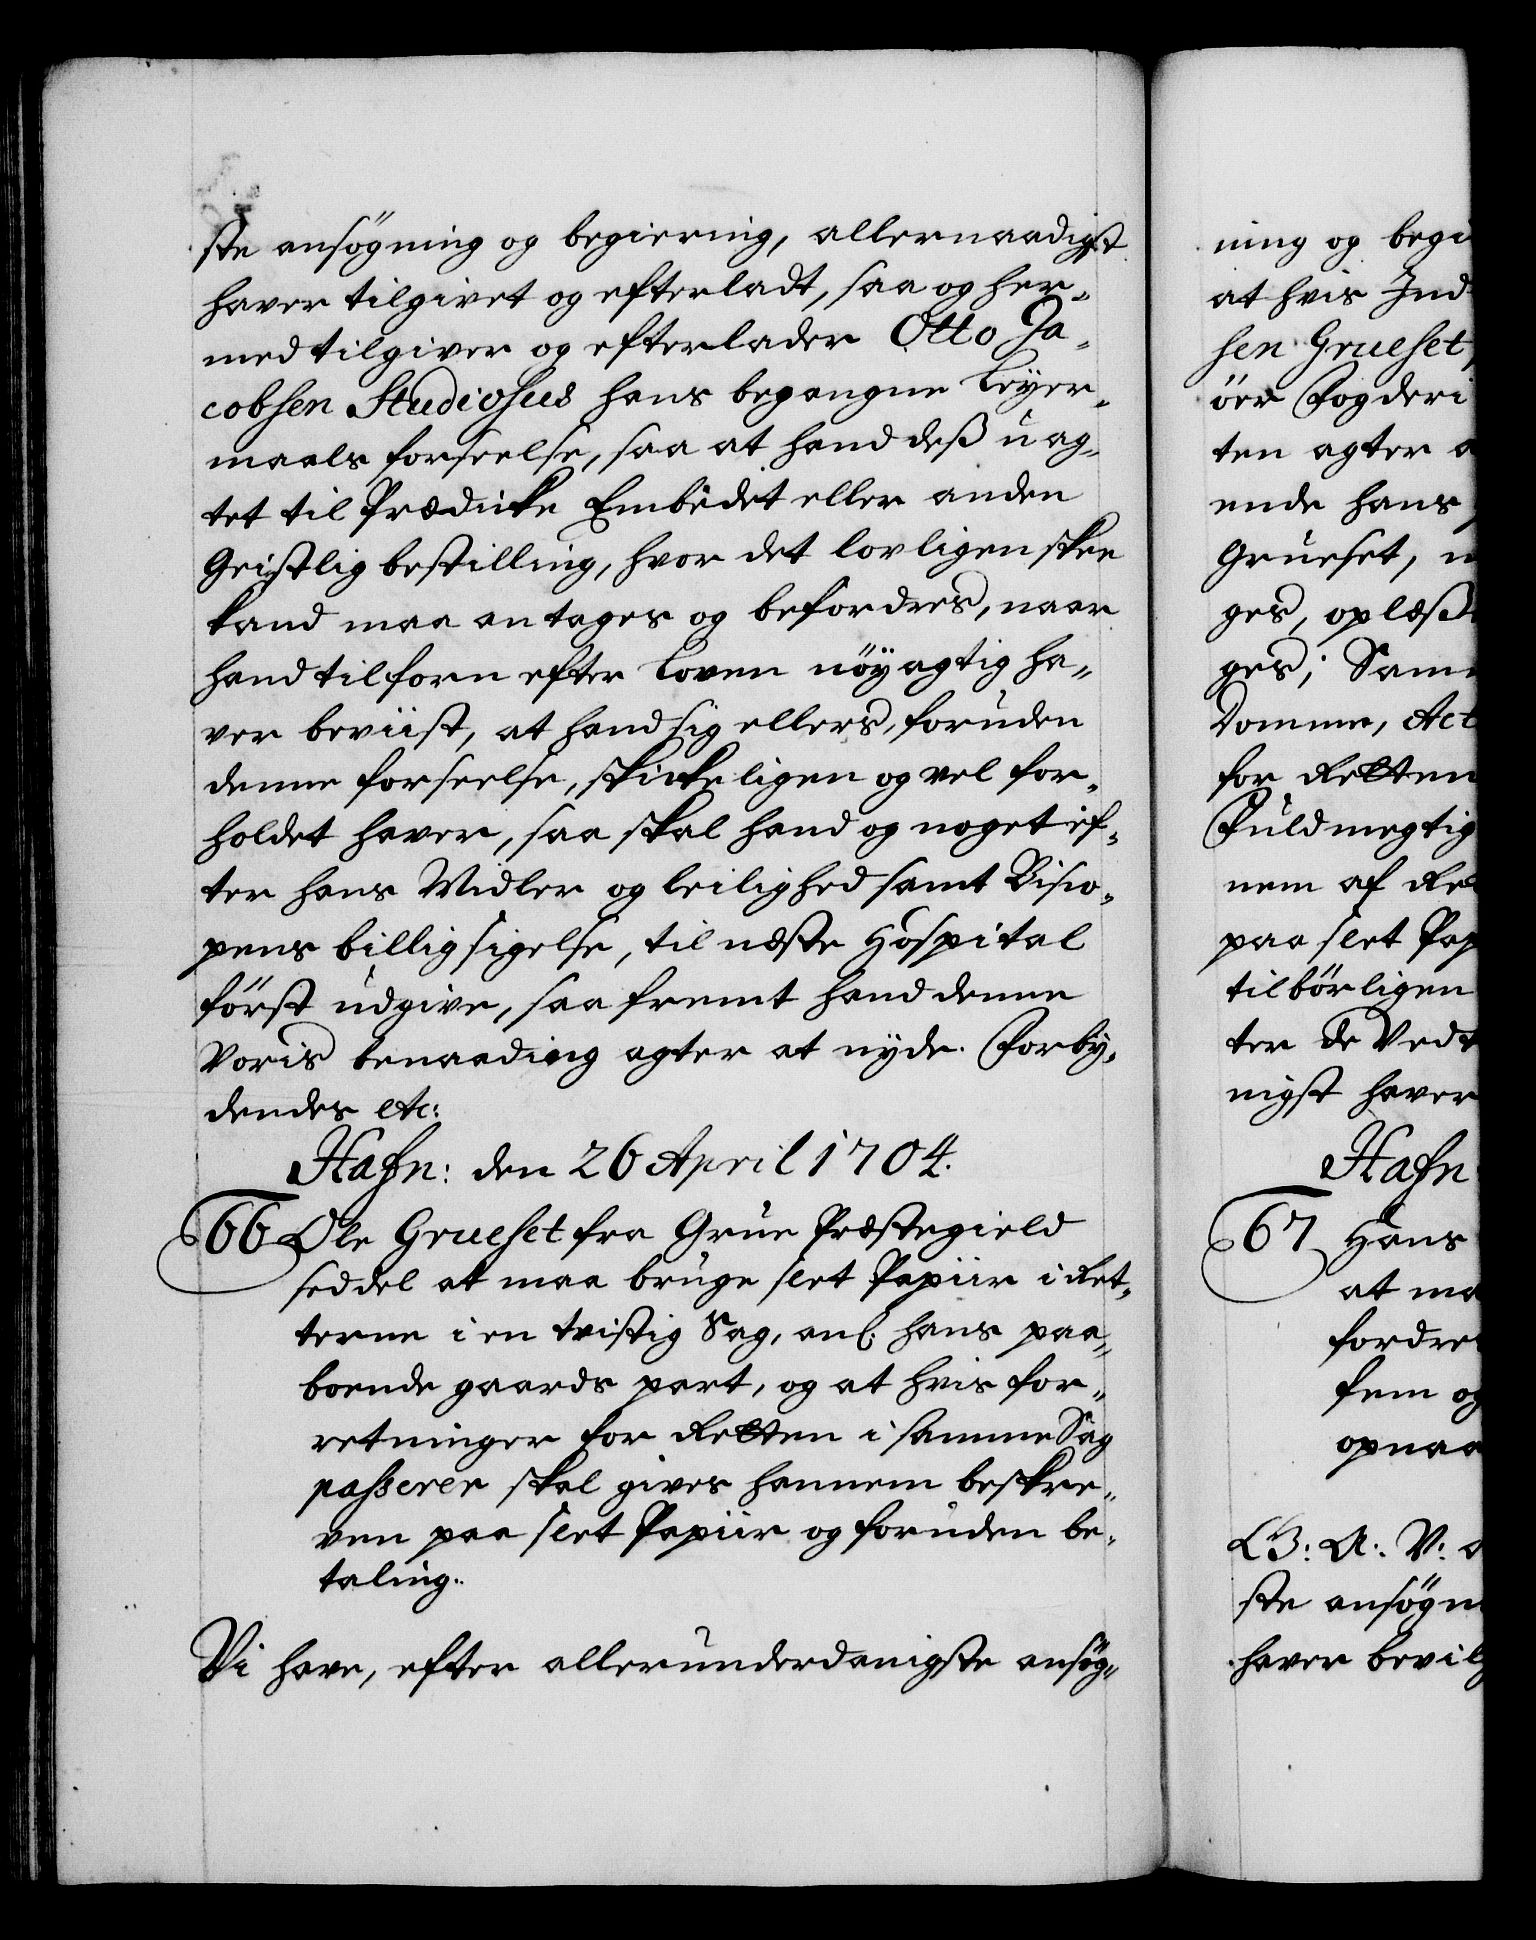 ste ansøgning og begiering, allernaadigst
haver tilgivet og efterladt, saa og her-
med tilgiver og efterlader Otto Ja-
cobsen Studiosus hans begangne Leyer-
maals forseelse, saa at hand deß uag-
tet til Prædicke Embedet eller anden
Geistlig bestilling, hvor det lovligen skee
kand maa antages og befordres, naar
hand tilforn efter Loven nöyagtig ha-
ver beviist, at hand sig ellers, foruden
denne forseelse, skickeligen og vel for-
holdet haver, saa skal hand og noget ef-
ter hans Midler og leilighed samt Bisco-
pens billigsigelse, til næste Hospital
först udgive, saa fremt hand denne
Voris benaading agter at nyde. Forby-
dendes etc:
Hafn: den 26 April 1704.
66 Ole Grueset fra Grue Præstegield
seddel at maa bruge slet Papiir i Ret-
terne i en tvistig Sag, anl. hans paa-
boende gaards part, og at hvis for-
retninger for Retten i samme Sag
passerer skal gives hannem beskre-
ven paa slet Papiir og foruden be-
taling.
Vi have, efter allerunderdanigste ansøg-
ning og begi
at hvis Ind
sen Grueset,
öer Fogderi
ten agter a
ende hans
Grueset,
ges, oplæß
ges; Sam
Domme, Act
for Retten
Fuldmegtig
nem af Re
paa slet Pap
tilbörligen
ter de Vedt
nigst haver
Hafn
67 Hans
at ma
fordre
fem og
opnaa
G: A: V: a
ste ansøgn
haver bevilg